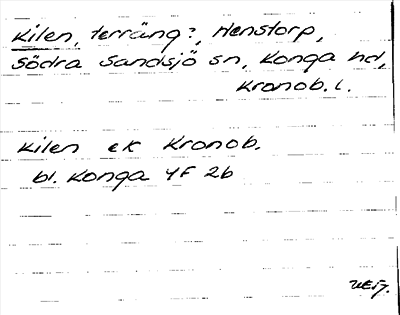 Kilen, terräng?, Henstorp,
Södra Sandsjö sn, Konga hd,
Kronob. l.
Kilen ek Kronob.
bl. Konga 4F 2b